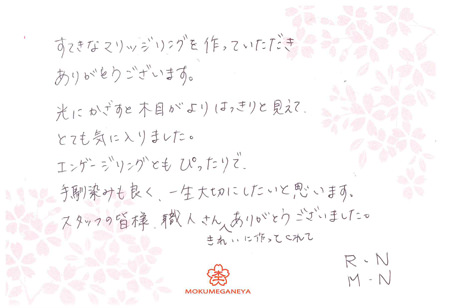 すてきなマリッジリングを作っていただき
ありがとうございます。
光にかざすと木目がよりはっきりと見えて、
とても気に入りました。
エンゲージリングともぴったりで、
手馴染みも良く、一生大切にしたいと思います。
スタッフの皆様、職人さん、ありがとうございました。
きれいに作ってくれて
R・N
M・N
MOKUMEGANEYA